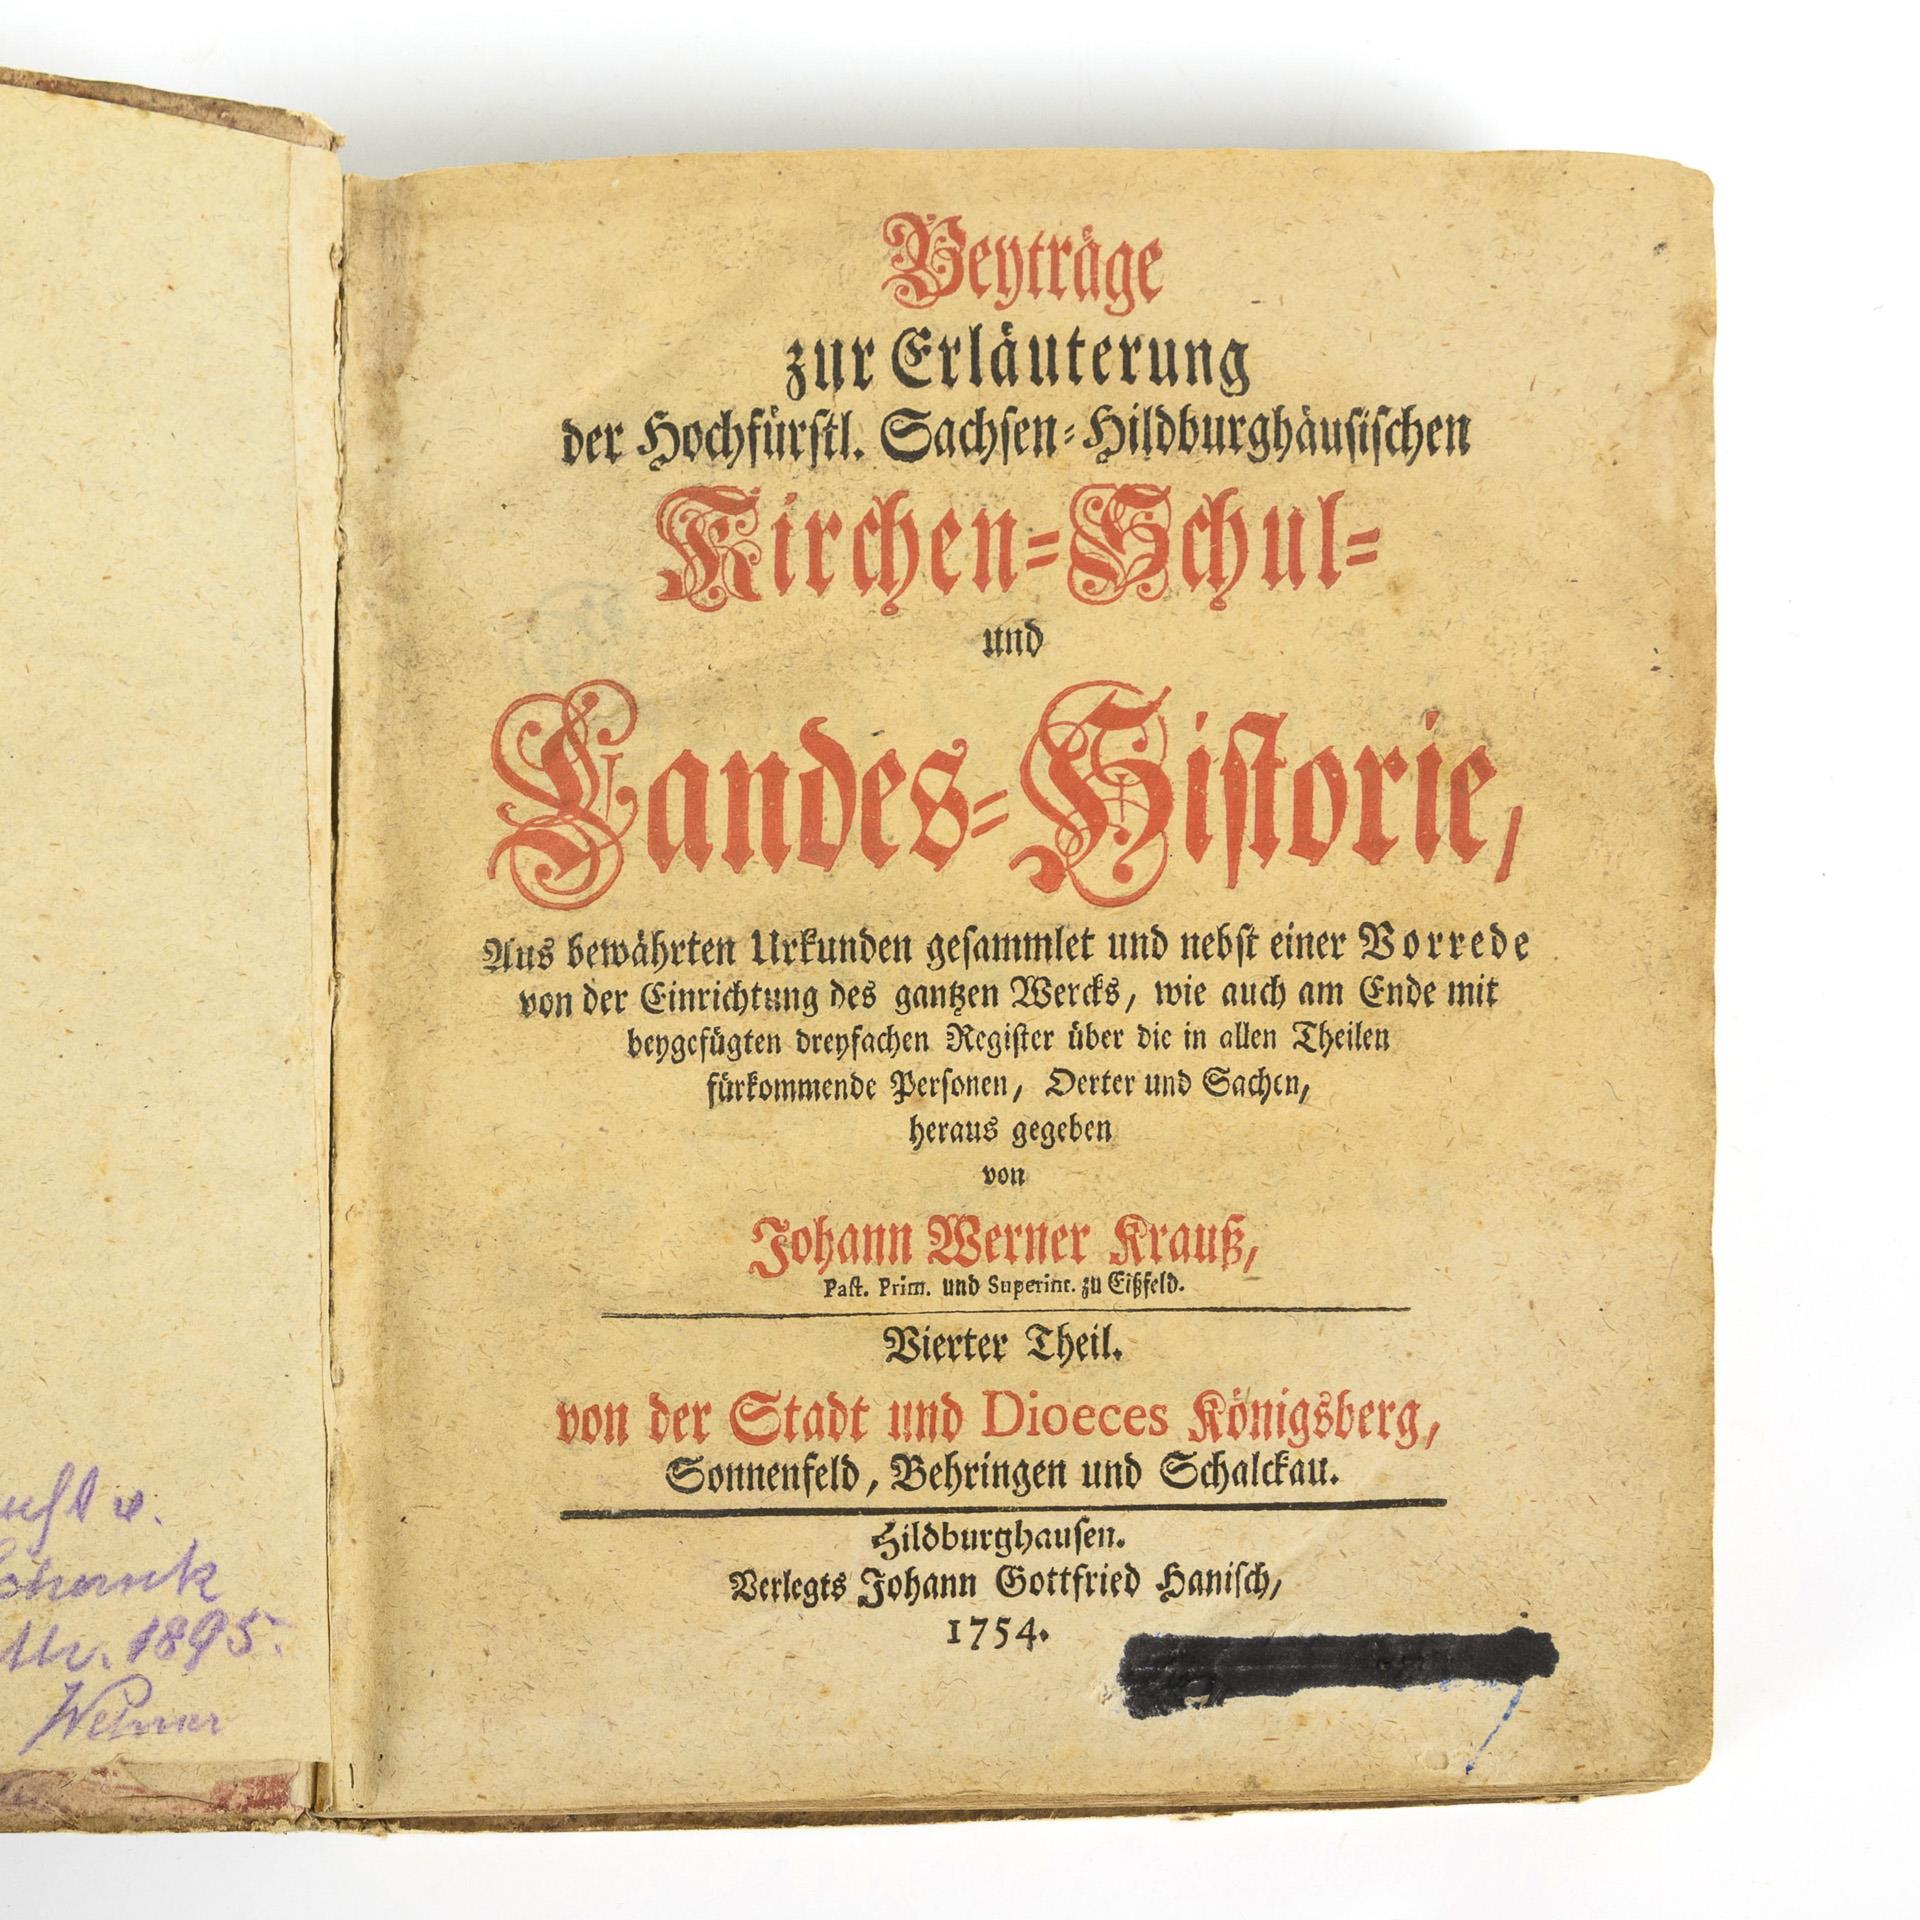 Beyträge
zur Erläuterung
der Hochfürstl. Sachsen-Hildburghäusischen
Kirchen-Schul-
und
Landes-Historie,
Aus bewährten Urkunden gesammlet und nebst einer Vorrede
von der Einrichtung des gantzen Wercks, wie auch am Ende mit
beygefügten dreyfachen Register über die in allen Theilen
fürkommende Personen, Oerter und Sachen,
heraus gegeben
von
Johann Werner Krauß,
Past. Prim. und Superint. zu Eißfeld.
Vierter Theil.
von der Stadt und Dioeces Königsberg,
Sonnenfeld, Behringen und Schalckau.
Hildburghausen.
Verlegts Johann Gottfried Hanisch,
1754.
1895.